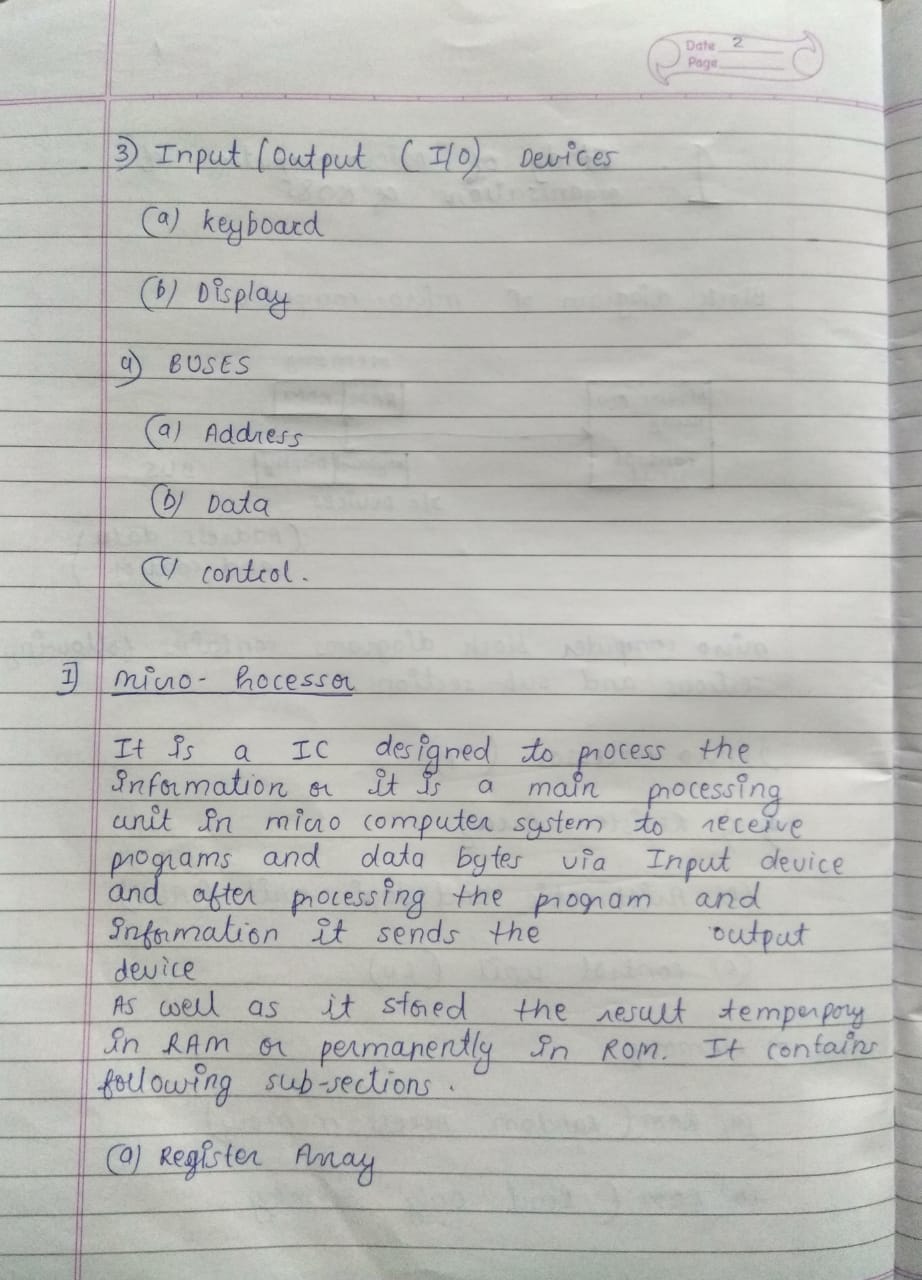 Date 2
Page
3) Input/Output (I/O) Devices
(a) keyboard
(b) Display
4) BUSES
(a) Address
(b) Data
(c) control.
I] micro-Processor
It is a IC designed to process the
information or it is a main processing
unit in micro computer system to receive
programs and data bytes via Input device
and after processing the program and
information it sends the output
device
As well as it stored the result temperpory
in RAM or permanently in ROM. It contains
following sub-sections.
(a) Register Array